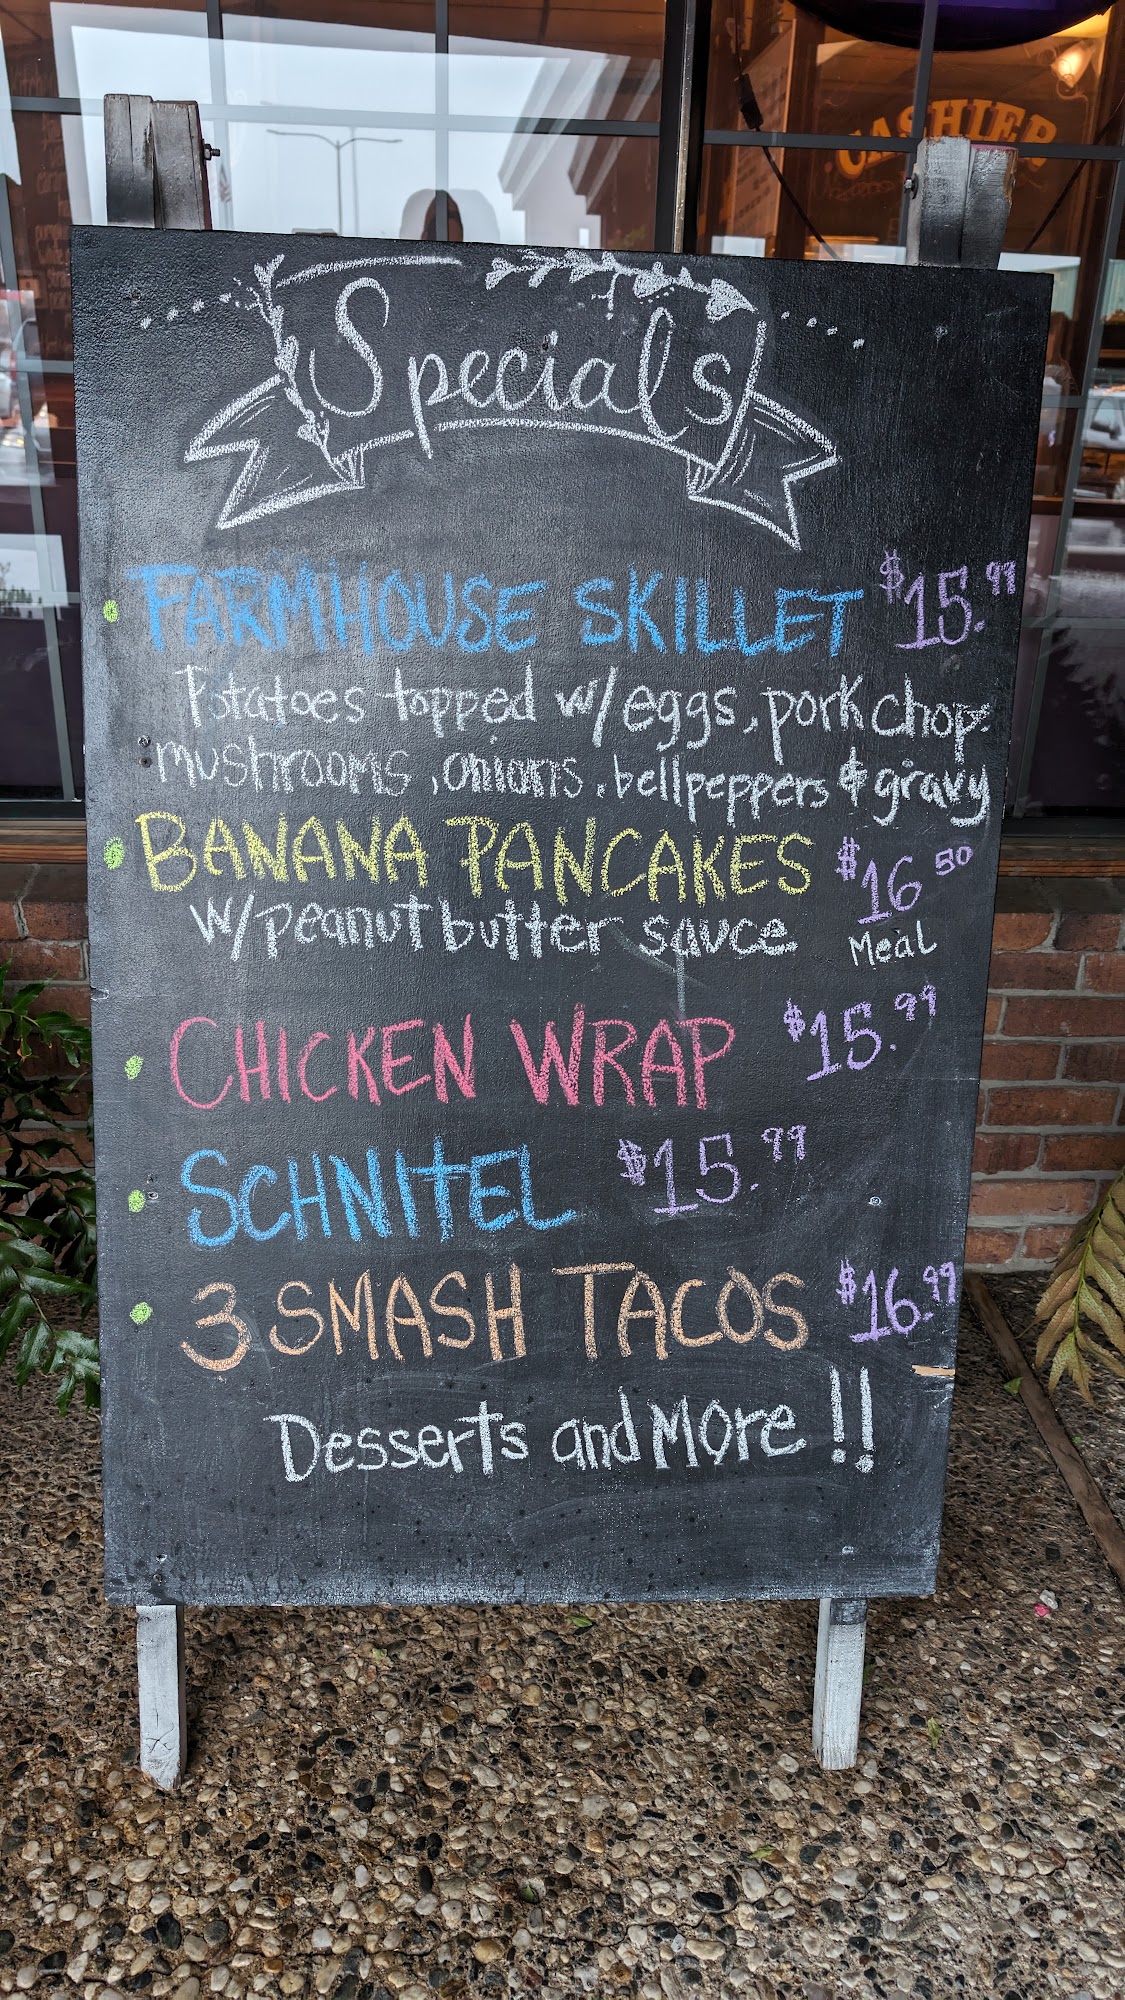 CASHIER
Specials
FARMHOUSE SKILLET $15.99
Potatoes topped w/ eggs, pork chop,
mushrooms, onions, bellpeppers & gravy
BANANA PANCAKES $16 50
w/ peanut butter sauce Meal
CHICKEN WRAP $15.99
SCHNITEL $15.99
3 SMASH TACOS $16.99
Desserts and More !!